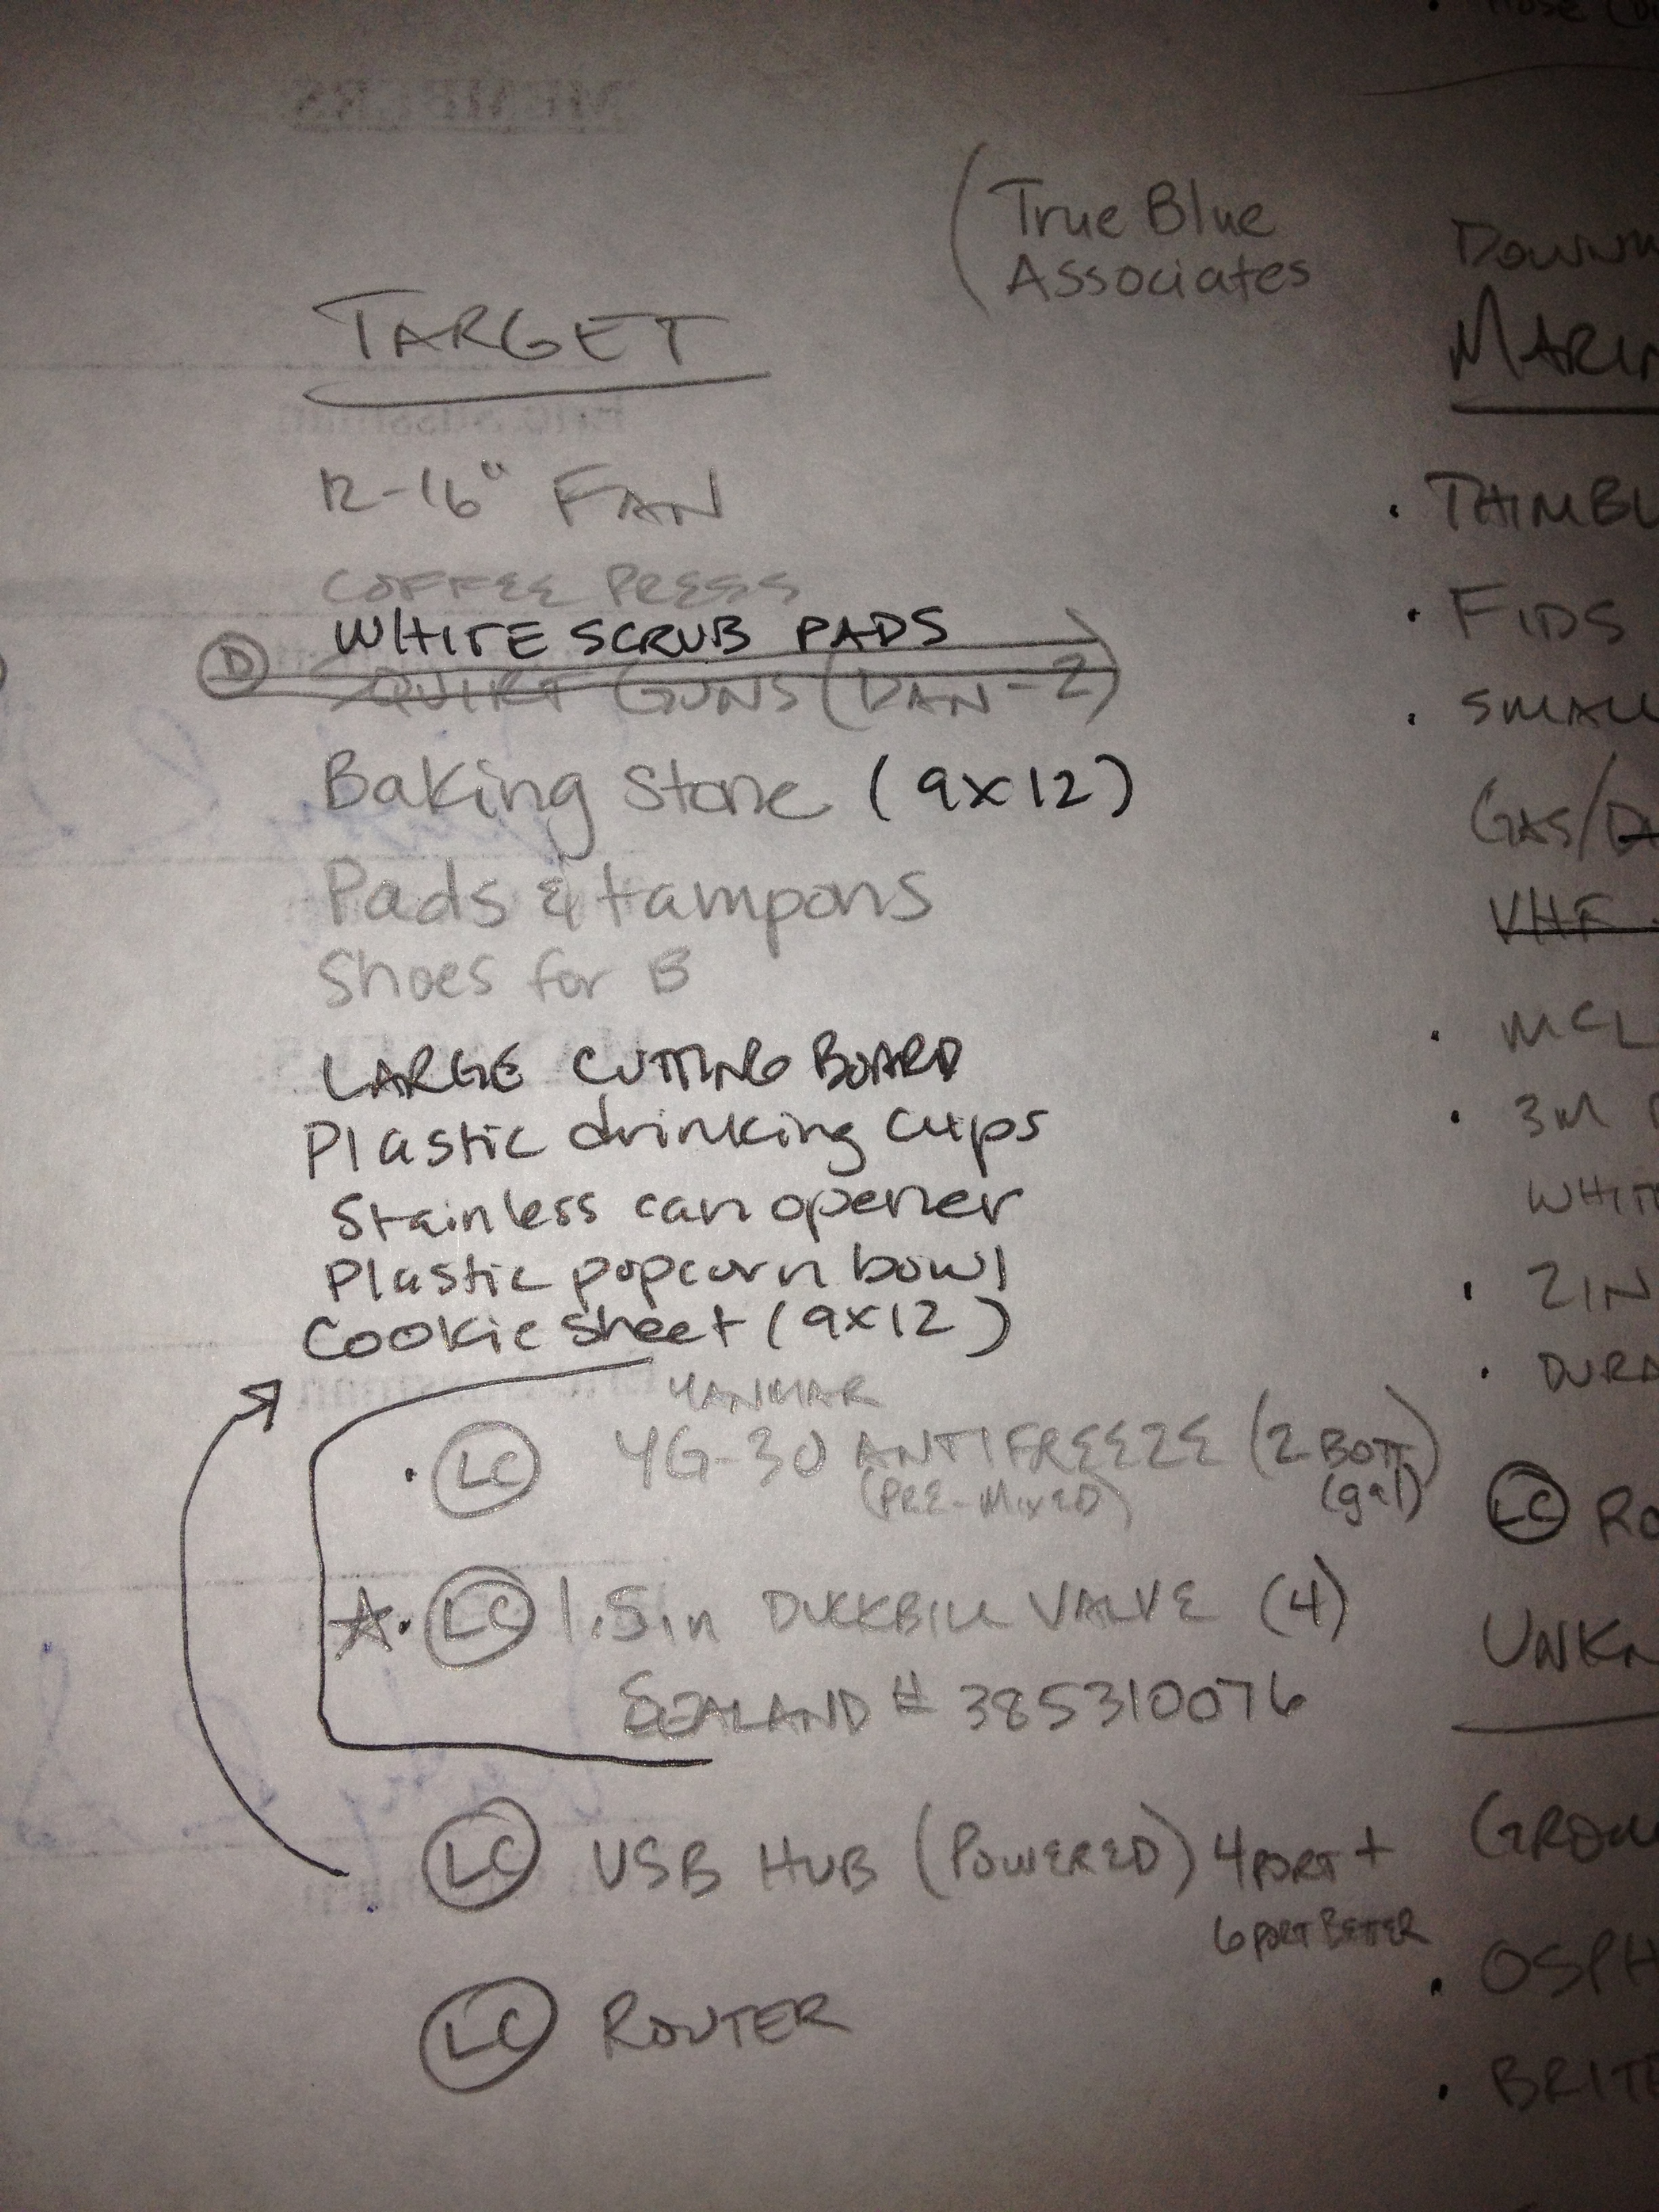 MEMBERS
True Blue
Associates
TARGET
12-16" FAN
COFFEE PRESS
WHITE SCRUB PADS
D SQUIRT GUNS (DAN-2)
Baking Stone (9x12)
Pads & tampons
Shoes for B
LARGE CUTTING BOARD
Plastic drinking cups
Stainless can opener
Plastic popcorn bowl
Cookie sheet (9x12)
YANMAR
LC 4G-30 ANTIFREEZE (2 BOTT.)
(PRE-MIXED) (gal)
LC 1.5in DUCKBILL VALVE (4)
SEALAND # 385310076
LC USB HUB (POWERED) 4 PORT +
6 PORT BETTER
LC ROUTER
MARIN
THIMBL
FIDS
SMALL
GAS/D
VHF
MCL
3M
WHIT
ZIN
DURA
LC RO
UNKN
GROU
OSPH
BRIT